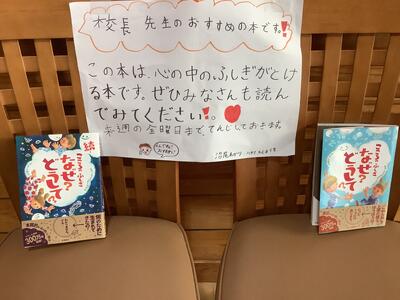 校長 先生のおすすめの本です!!
この本は、心の中のふしぎがとけ
る本です。ぜひみなさんも読ん
でみてください!。
来週の金曜日まで、てんじしておきます。
よんでね!
おすすめ!
続
こころのふしぎ
なぜ?
どうして?
300万部
こころのふしぎ
なぜ?
どうして?
300万部